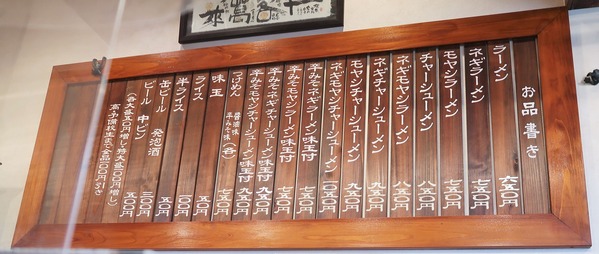 お品書き
ラーメン 六五〇円
ネギラーメン 七五〇円
モヤシラーメン 七五〇円
チャーシューメン 八五〇円
ネギモヤシラーメン 八五〇円
ネギチャーシューメン 九五〇円
モヤシチャーシューメン 九五〇円
ネギモヤシチャーシューメン 一〇五〇円
辛みそネギラーメン味玉付 七五〇円
辛みそモヤシラーメン味玉付 七五〇円
辛みそネギチャーシューメン味玉付 九五〇円
辛みそモヤシチャーシューメン味玉付 九五〇円
つけめん 醤油味 辛みそ味(各) 七五〇円
味玉 一〇〇円
ライス 一五〇円
半ライス 一〇〇円
缶ビール 発泡酒 三〇〇円
ビール 中ビン 五〇〇円
(各大盛五〇円増し・特大盛一〇〇円増し)
高予備校生まで全品一〇〇円引き